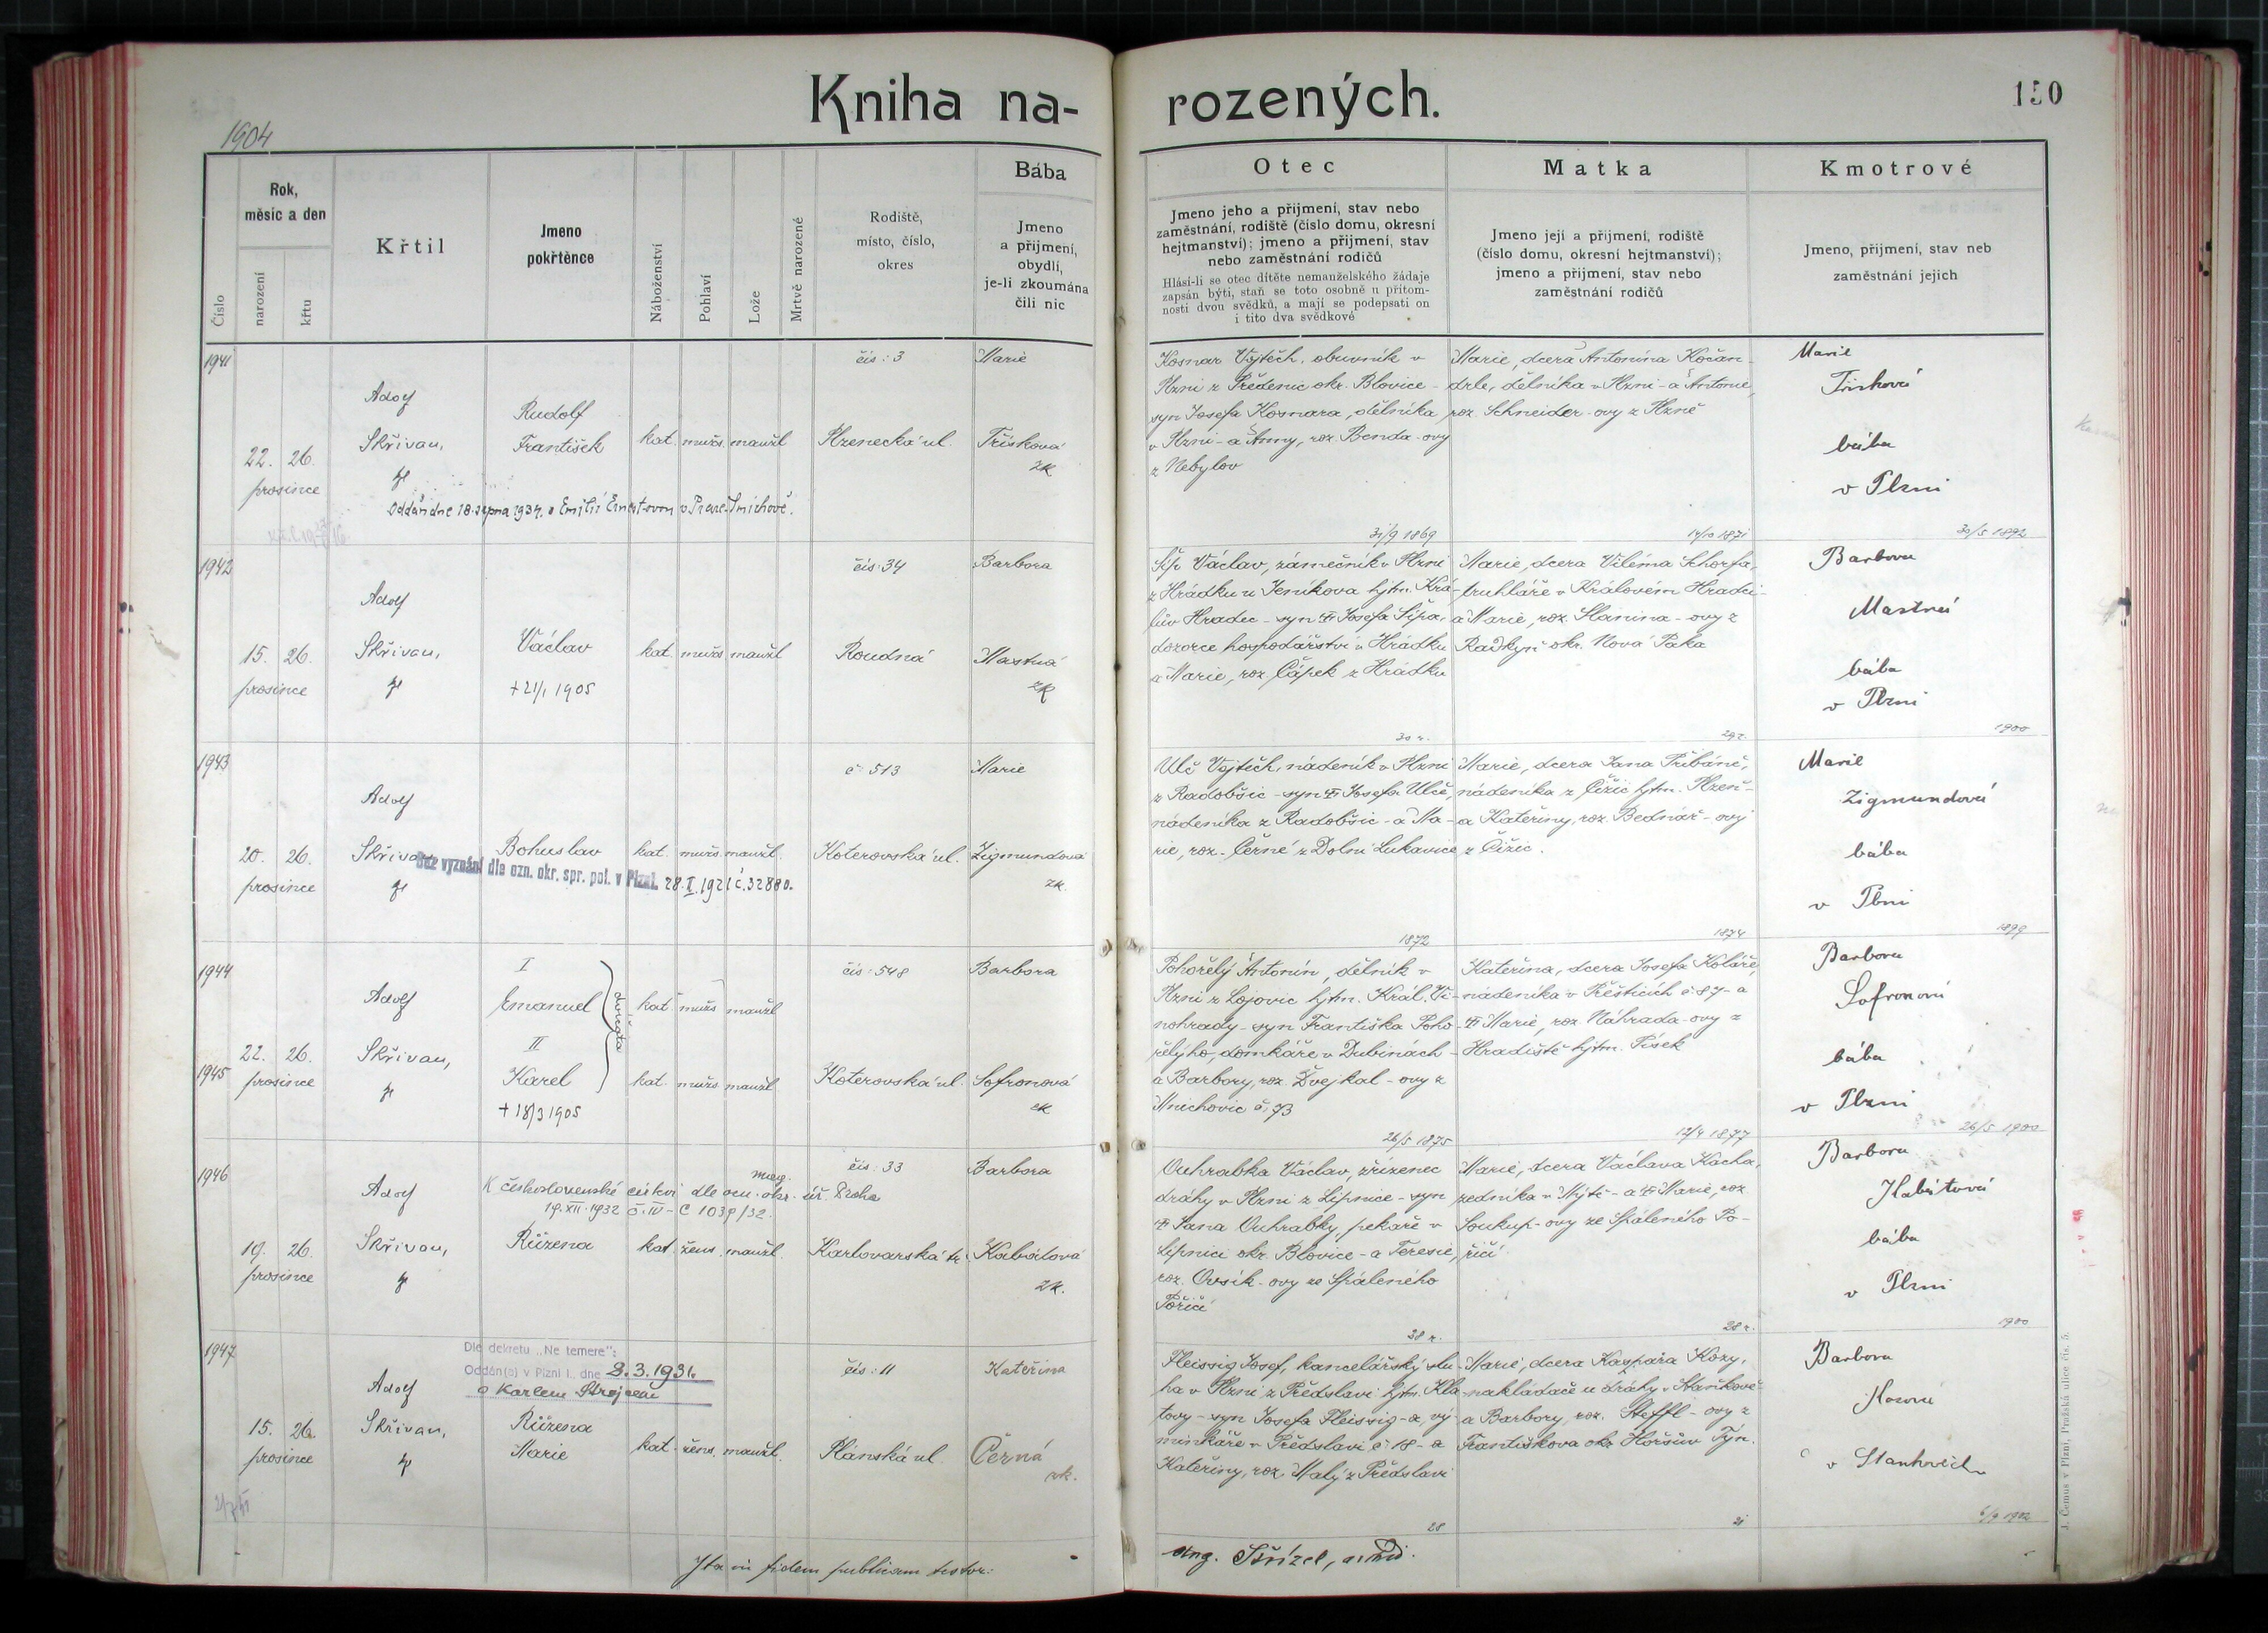 Kniha na-
rozených.
150
1904
Číslo
Rok,
měsíc a den
narození
křtu
Křtil
Jmeno
pokřtěnce
Náboženství
Pohlaví
Lože
Mrtvě narozené
Rodiště,
místo, číslo,
okres
Bába
Jmeno
a přijmení,
obydlí,
je-li zkoumána
čili nic
Otec
Jmeno jeho a přijmení, stav nebo
zaměstnání, rodiště (číslo domu, okresní
hejtmanství); jmeno a přijmení, stav
nebo zaměstnání rodičů
Hlásí-li se otec dítěte nemanželského žádaje
zapsán býti, staň se toto osobně u přítom-
nosti dvou svědků, a mají se podepsati on
i tito dva svědkové
Matka
Jmeno její a přijmení, rodiště
(číslo domu, okresní hejtmanství);
jmeno a přijmení, stav nebo
zaměstnání rodičů
Kmotrové
Jmeno, přijmení, stav neb
zaměstnání jejich
1941
22. 26.
prosince
Adolf
Skřivan,
Rudolf
František
kat. mužs. manžl.
čís: 3
Plzenecká ul.
Marie
Třísková
zk.
Oddán dne 18. srpna 1934. s Emilií Ernestovou v Praze-Smíchově.
Kosnar Vojtěch, obuvník v
Plzni z Předenic okr. Blovice -
syn Josefa Kosnara, dělníka
v Plzni - a Anny, roz. Benda-ovy
z Nebylov
31/9 1869
Marie, dcera Antonína Kočan-
drle, dělníka v Plzni - a Antonie,
roz. Schneider-ovy z Plzně
14/10 1871
Marie
Třísková
bába
v Plzni
30/5 1892
1942
15. 26.
prosince
Adolf
Skřivan,
Václav
+ 21/1 1905
kat. mužs. manžl.
čís: 34
Roudná
Barbora
Mastná
zk.
Šíp Václav, zámečník v Plzni
z Hrádku u Jeníkova hjtm. Krá-
lův Hradec - syn Josefa Šípa,
dozorce hospodářství v Hrádku
a Marie, roz. Čápek z Hrádku
30 r.
Marie, dcera Viléma Schorfa,
truhláře v Královém Hradci -
a Marie, roz. Slanina-ovy z
Radkyň okr. Nová Paka
29 r.
Barbora
Mastná
bába
v Plzni
1900
1943
20. 26.
prosince
Adolf
Skřivan,
Bohuslav
kat. mužs. manžl.
Bez vyznání dle ozn. okr. spr. pol. v Plzni. 28. I. 1921 č. 32880.
č: 513
Koterovská ul.
Marie
Zigmundová
zk.
Ulč Vojtěch, nádeník v Plzni
z Radobšic - syn Josefa Ulče,
nádeníka z Radobšic - a Ma-
rie, roz. Černé z Dolní Lukavice
1872
Marie, dcera Jana Pribáně,
nádeníka z Čižic hjtm. Plzeň -
a Kateřiny, roz. Bednář-ovy
z Čižic.
1874
Marie
Zigmundová
bába
v Plzni
1899
1944
1945
22. 26.
prosince
Adolf
Skřivan,
I
Emanuel
II
Karel
+ 18/3 1905
dvojčata
kat. mužs. manžl.
kat. mužs. manžl.
čís: 548
Koterovská ul.
Barbora
Sofronová
zk.
Pohořelý Antonín, dělník v
Plzni z Lojovic hjtm. Král. Vi-
nohrady - syn Františka Poho-
řelýho, domkáře v Dubinách -
a Barbory, roz. Dvejkal-ovy z
Mnichovic č. 73
26/5 1875
Kateřina, dcera Josefa Koláře,
nádeníka v Přešticích č. 87 - a
Marie, roz. Náhrada-ovy z
Hradiště hjtm. Písek
12/4 1877
Barbora
Sofronová
bába
v Plzni
26/5 1900
1946
19. 26.
prosince
Adolf
Skřivan,
K československé církvi dle ozn. mag. okr. úř. Praha
19. XII. 1932 č. IV - C 1039/32.
Růžena
kat. žens. manžl.
čís: 33
Karlovarská tř.
Barbora
Kabátová
zk.
Ouhrabka Václav, zřízenec
dráhy v Plzni z Lipnice - syn
Jana Ouhrabky, pekaře v
Lipnici okr. Blovice - a Teresie,
roz. Ovsík-ovy ze Spáleného
Poříčí
38 r.
Marie, dcera Václava Kacha,
zedníka v Mýtě - a Marie, roz.
Soukup-ovy ze Spáleného Po-
říčí
28 r.
Barbora
Kabátová
bába
v Plzni
1900
1947
15. 26.
prosince
Adolf
Skřivan,
Dle dekretu „Ne temere":
Oddán(a) v Plzni I. dne 8.3.1931.
s Karlem Strejcem
Růžena
Marie
kat. žens. manžl.
čís: 11
Plánská ul.
Kateřina
Černá
zk.
Fleissig Josef, kancelářský slu-
ha v Plzni z Předslavi hjtm. Kla-
tovy - syn Josefa Fleissig-a, vý-
minkáře v Předslavi č. 18 - a
Kateřiny, roz. Malý z Předslavi
28
Marie, dcera Kašpara Kozy,
nakladače u dráhy v Staňkově
a Barbory, roz. Steffl-ovy z
Františkova okr. Horšův Týn.
21
Barbora
Kozová
v Stankovich
6/9 1902
Ita in fidem publicam testor:
Ang. Střízel,
J. Čemus v Plzni, Pražská ulice čís. 5.